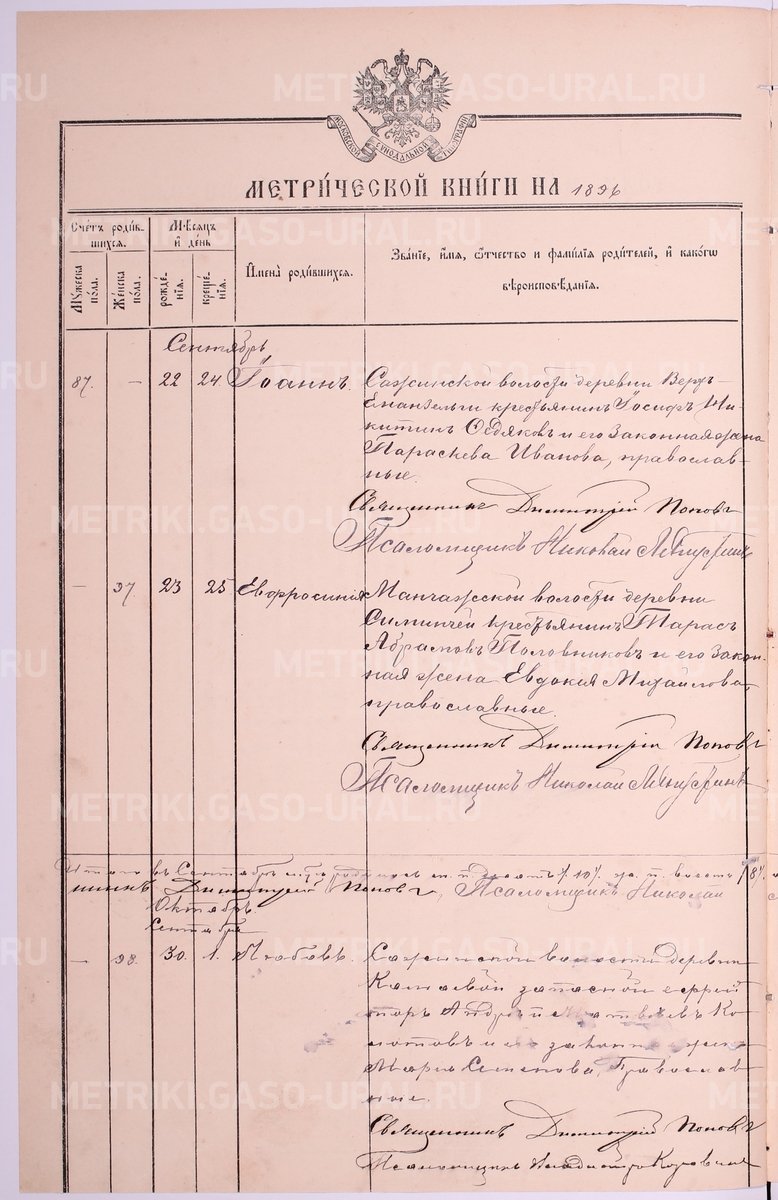 МОСКОВСКОЙ СѴНОДАЛЬНОЙ ТИПОГРАФІИ
МЕТРИ́ЧЕСКОЙ КНИ́ГИ НА 1896
Счетъ роди́в-
шихся.
Мѣсяцъ
и҆ де́нь
Мꙋ́жеска
по́ла.
Же́нска
по́ла.
рожде́-
нїя.
креще́-
нїя.
И҆мена̀ роди́вшихся.
Зва́нїе, и҆́мѧ, ѻ҆́тчество и фами́лїя роди́телей, и҆ како́гѡ
вѣроисповѣ́данїя.
Сентябрь
87. — 22 24 Іоаннъ. Сажинской волости деревни Верхъ-
крестьянинъ Іосифъ Ни-
китинъ Седяковъ и его законная жена
Параскева Иванова, православ-
ные.
Священникъ Димитрій Поповъ
Псаломщикъ Николай
— 97 23 25 Евфросинія Манчажской волости деревни
крестьянинъ Тарасъ
Абрамовъ Половниковъ и его закон-
ная жена Евдокия Михайлова,
православные.
Священникъ Димитрій Поповъ
Псаломщикъ Николай
Итого въ Сентябрѣ
Димитрій Поповъ, Псаломщикъ Николай
Октябрь.
Сентябрь
— 98. 30. 1. Любовь. Сажинской волости деревни
запасной ефрей-
торъ Андрей Матвѣевъ
и его законная жена
Марія Семенова, Православ-
ные.
Священникъ Димитрій Поповъ
Псаломщикъ
METRIKI.GASO-URAL.RU